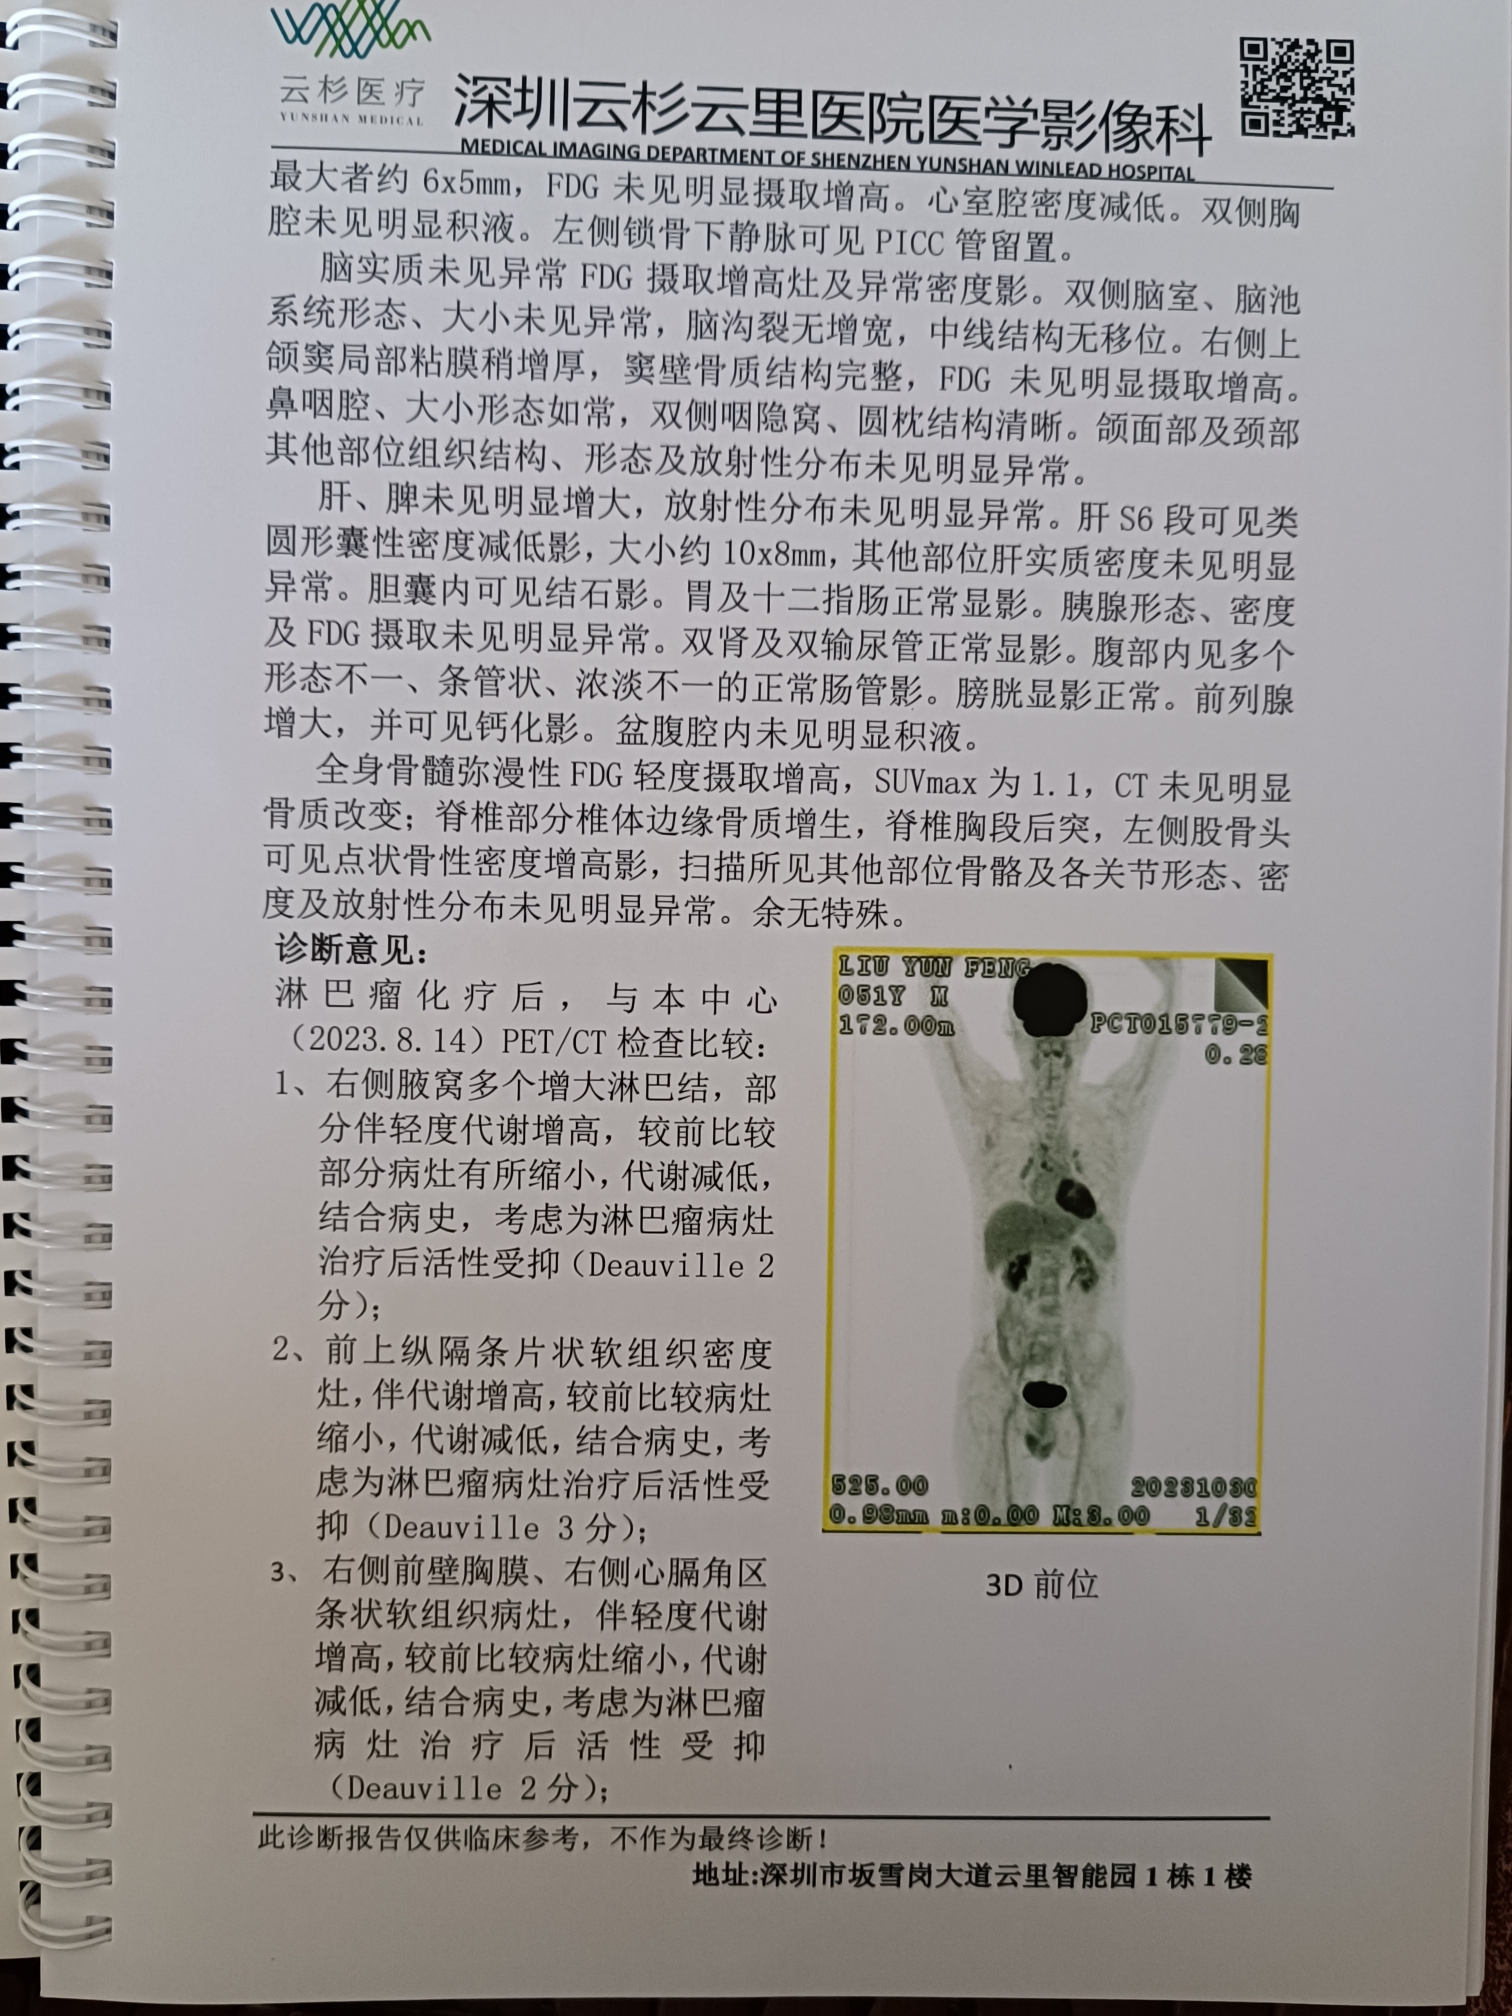 云杉医疗
YUNSHAN MEDICAL
深圳云杉云里医院医学影像科
MEDICAL IMAGING DEPARTMENT OF SHENZHEN YUNSHAN WINLEAD HOSPITAL
最大者约 6x5mm，FDG 未见明显摄取增高。心室腔密度减低。双侧胸
腔未见明显积液。左侧锁骨下静脉可见 PICC 管留置。
脑实质未见异常 FDG 摄取增高灶及异常密度影。双侧脑室、脑池
系统形态、大小未见异常，脑沟裂无增宽，中线结构无移位。右侧上
颌窦局部粘膜稍增厚，窦壁骨质结构完整，FDG 未见明显摄取增高。
鼻咽腔、大小形态如常，双侧咽隐窝、圆枕结构清晰。颌面部及颈部
其他部位组织结构、形态及放射性分布未见明显异常。
肝、脾未见明显增大，放射性分布未见明显异常。肝 S6 段可见类
圆形囊性密度减低影，大小约 10x8mm，其他部位肝实质密度未见明显
异常。胆囊内可见结石影。胃及十二指肠正常显影。胰腺形态、密度
及 FDG 摄取未见明显异常。双肾及双输尿管正常显影。腹部内见多个
形态不一、条管状、浓淡不一的正常肠管影。膀胱显影正常。前列腺
增大，并可见钙化影。盆腹腔内未见明显积液。
全身骨髓弥漫性 FDG 轻度摄取增高，SUVmax 为 1.1，CT 未见明显
骨质改变；脊椎部分椎体边缘骨质增生，脊椎胸段后突，左侧股骨头
可见点状骨性密度增高影，扫描所见其他部位骨骼及各关节形态、密
度及放射性分布未见明显异常。余无特殊。
诊断意见：
淋巴瘤化疗后，与本中心
（2023.8.14）PET/CT 检查比较：
1、右侧腋窝多个增大淋巴结，部
分伴轻度代谢增高，较前比较
部分病灶有所缩小，代谢减低，
结合病史，考虑为淋巴瘤病灶
治疗后活性受抑（Deauville 2
分）；
2、前上纵隔条片状软组织密度
灶，伴代谢增高，较前比较病灶
缩小，代谢减低，结合病史，考
虑为淋巴瘤病灶治疗后活性受
抑（Deauville 3 分）；
3、右侧前壁胸膜、右侧心膈角区
条状软组织病灶，伴轻度代谢
增高，较前比较病灶缩小，代谢
减低，结合病史，考虑为淋巴瘤
病灶治疗后活性受抑
（Deauville 2 分）；
LIU YUN FENG
051Y M
172.00m PCT015779-2
0.28
525.00 20231030
0.98mm m:0.00 M:3.00 1/32
3D 前位
此诊断报告仅供临床参考，不作为最终诊断！
地址:深圳市坂雪岗大道云里智能园 1 栋 1 楼